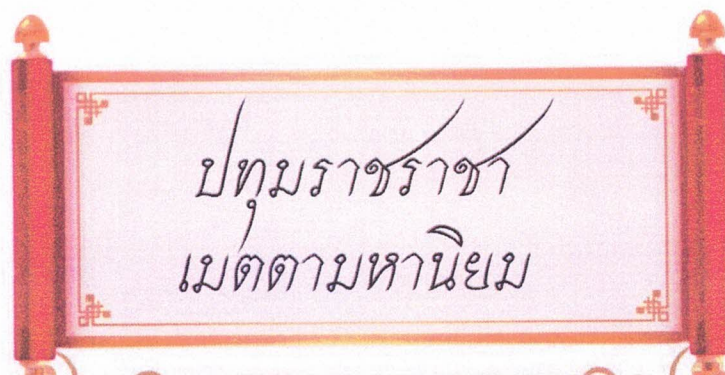 ปทุมราชราชา
เมตตามหานิยม